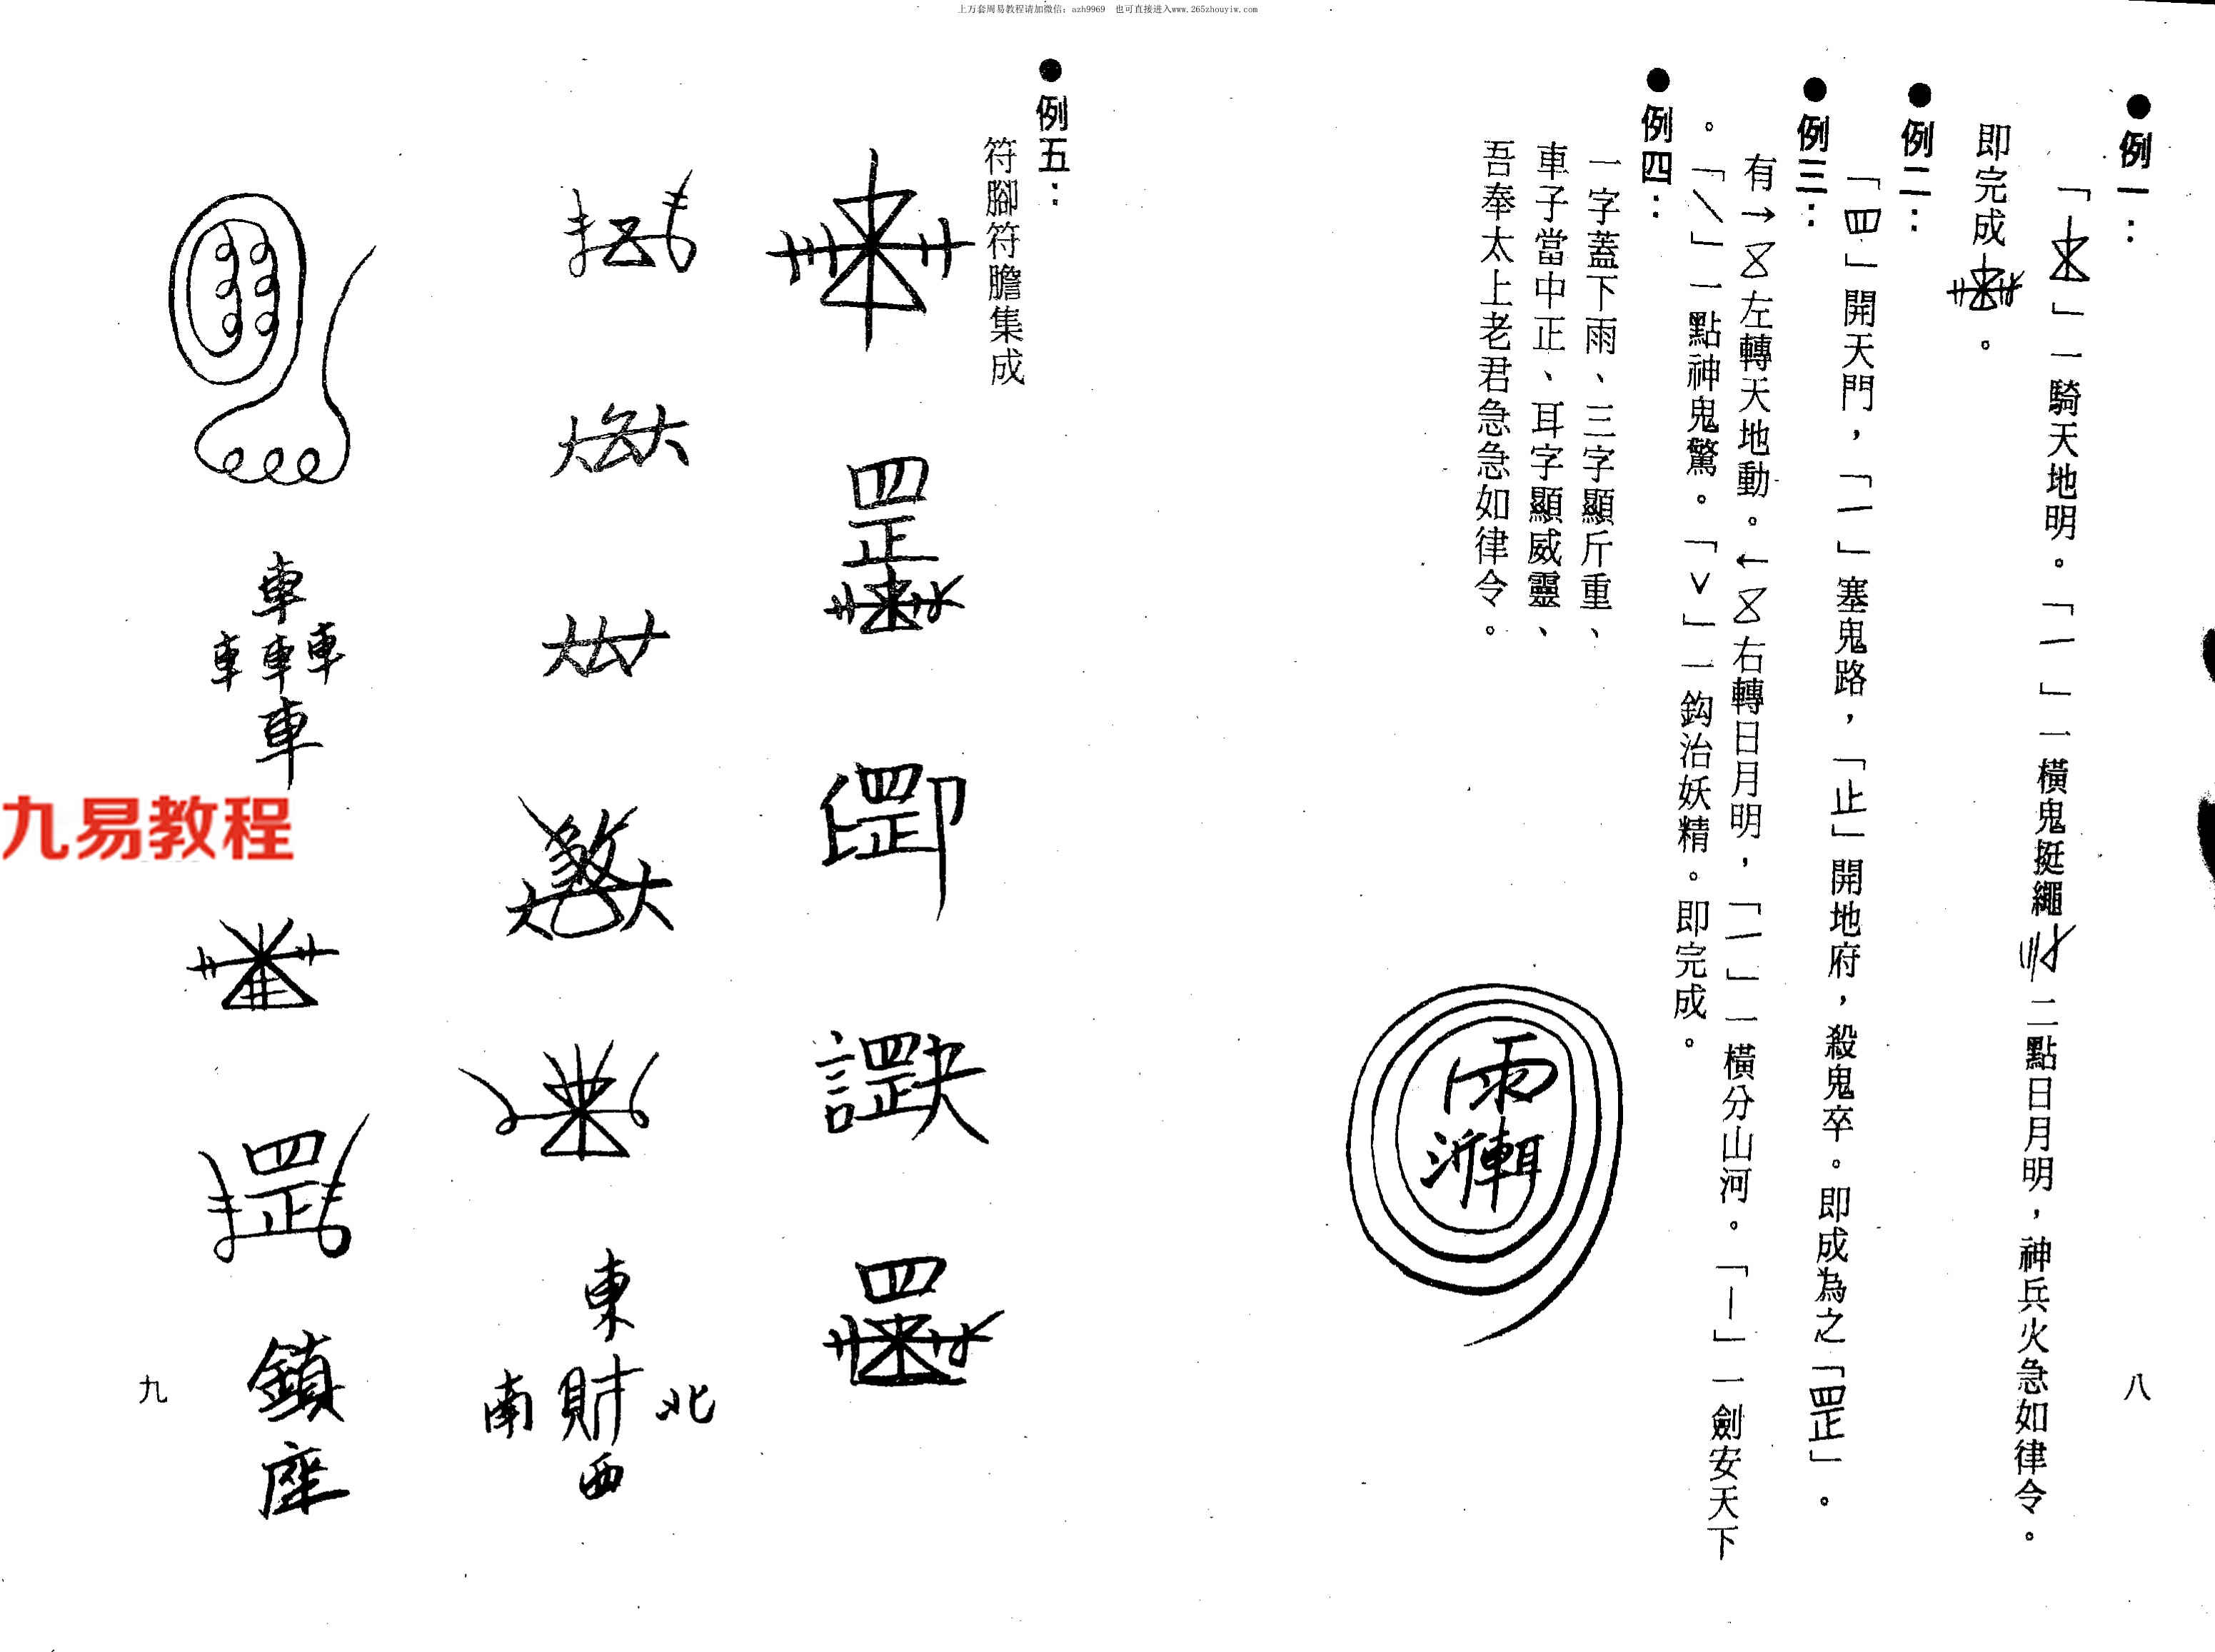 上万套周易教程请加微信：azh9969 也可直接进入www.265zhouyiw.com
●例一：
「」一騎天地明。「一」一橫鬼挺繩二點日月明，神兵火急如律令。
即完成。
●例二：
「四」開天門，「一」塞鬼路，「止」開地府，殺鬼卒。即成為之「罡」。
●例三：
有→左轉天地動。←右轉日月明，「一」一橫分山河。「｜」一劍安天下
。「＼」一點神鬼驚。「∨」一鈎治妖精。即完成。
●例四：
一字蓋下雨、三字顯斤重、
車子當中正、耳字顯威靈、
吾奉太上老君急急如律令。
雨
八
●例五：
符腳符膽集成
罡
罡
東
南財北
西
車
車車車
車
罡
鎖座
九
九易教程